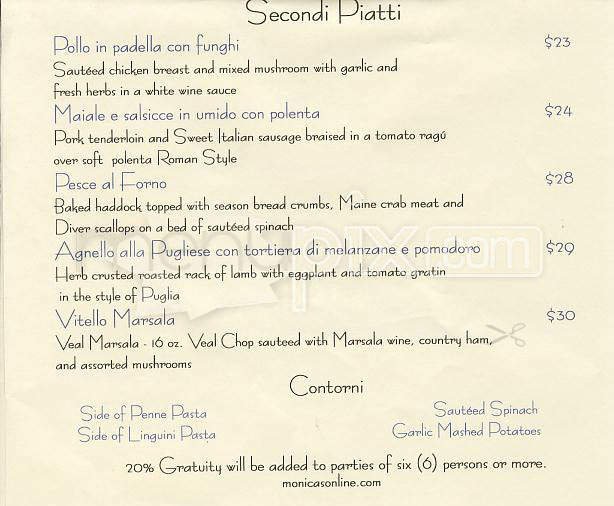 Secondi Piatti
Pollo in padella con funghi $23
Sautéed chicken breast and mixed mushroom with garlic and
fresh herbs in a white wine sauce
Maiale e salsicce in umido con polenta $24
Pork tenderloin and Sweet Italian sausage braised in a tomato ragú
over soft polenta Roman Style
Pesce al Forno $28
Baked haddock topped with season bread crumbs, Maine crab meat and
Diver scallops on a bed of sautéed spinach
Agnello alla Pugliese con tortiera di melanzane e pomodoro $29
Herb crusted roasted rack of lamb with eggplant and tomato gratin
in the style of Puglia
Vitello Marsala $30
Veal Marsala - 16 oz. Veal Chop sauteed with Marsala wine, country ham,
and assorted mushrooms
Contorni
Side of Penne Pasta Sautéed Spinach
Side of Linguini Pasta Garlic Mashed Potatoes
20% Gratuity will be added to parties of six (6) persons or more.
monicasonline.com